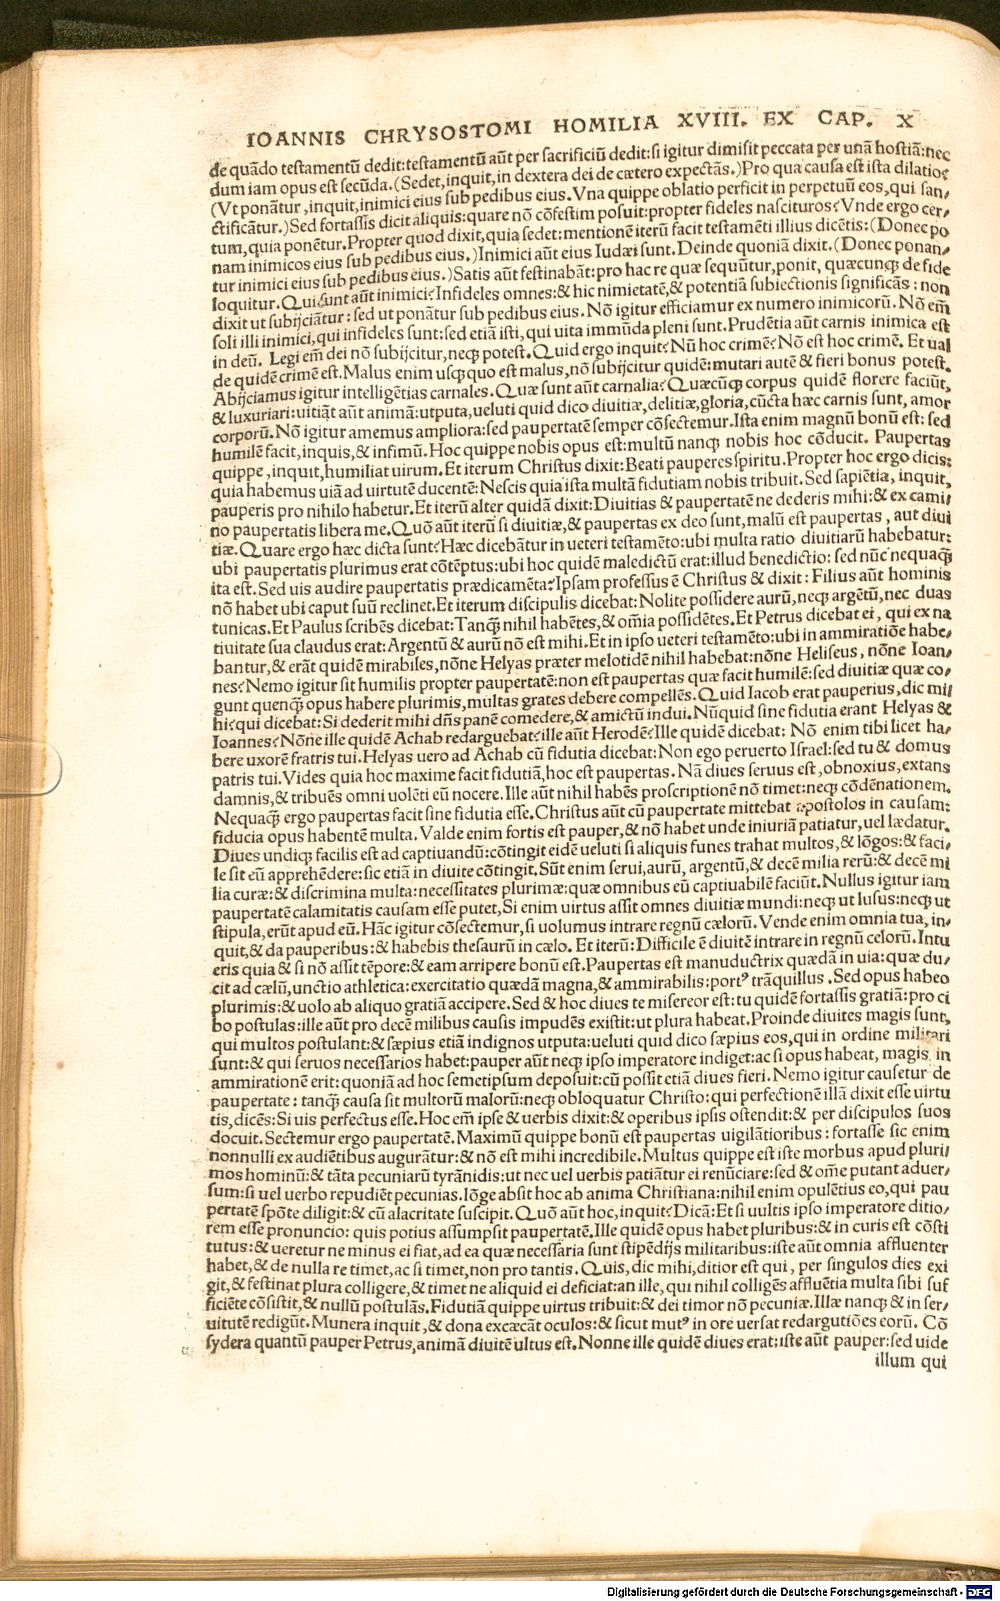 IOANNIS CHRYSOSTOMI HOMILIA XVIII. EX CAP. X
de quãdo testamentũ dedit:testamentũ aũt per sacrificiũ dedit:si igitur dimisit peccata per unã hostiã:nec
dum iam opus est secũda.(Sedet,inquit,in dextera dei de cætero expectãs.)Pro qua causa est ista dilatio?
(Vt ponãtur,inquit,inimici eius sub pedibus eius. Vna quippe oblatio perficit in perpetuũ eos,qui san/
ctificãtur.)Sed fortassis dicit aliquis:quare nõ cõfestim posuit:propter fideles nascituros? Vnde ergo cer/
tum,quia ponẽtur.Propter quod dixit,quia sedet:mentionẽ iterũ facit testamẽti illius dicẽtis:(Donec po
nam inimicos eius sub pedibus eius.)Inimici aũt eius Iudæi sunt.Deinde quoniã dixit.(Donec ponan/
tur inimici eius sub pedibus eius.)Satis aũt festinabãt:pro hac re quæ sequũtur,ponit, quæcunq; de fide
loquitur.Qui sunt aũt inimici? Infideles omnes:& hic nimietatẽ,& potentiã subiectionis significãs : non
dixit ut subijciãtur : sed ut ponãtur sub pedibus eius. Nõ igitur efficiamur ex numero inimicorũ. Nõ em̃
soli illi inimici,qui infideles sunt:sed etiã isti, qui uita immũda pleni sunt.Prudẽtia aũt carnis inimica est
in deũ. Legi em̃ dei nõ subijcitur,neq; potest.Quid ergo inquit? Nũ hoc crimẽ? Nõ est hoc crimẽ. Et ual
de quidẽ crimẽ est.Malus enim usq; quo est malus,nõ subijcitur quidẽ:mutari autẽ & fieri bonus potest.
Abijciamus igitur intelligẽtias carnales.Quæ sunt aũt carnalia? Quæcũq; corpus quidẽ florere faciũt,
& luxuriari:uitiãt aũt animã:utputa,ueluti quid dico diuitiæ,delitiæ,gloria,cũcta hæc carnis sunt, amor
corporũ.Nõ igitur amemus ampliora:sed paupertatẽ semper cõsectemur.Ista enim magnũ bonũ est: sed
humilẽ facit,inquis,& infimũ.Hoc quippe nobis opus est:multũ nanq; nobis hoc cõducit. Paupertas
quippe,inquit,humiliat uirum.Et iterum Christus dixit:Beati pauperes spiritu.Propter hoc ergo dicis:
quia habemus uiã ad uirtutẽ ducentẽ:Nescis quia ista multã fidutiam nobis tribuit.Sed sapiẽtia, inquit,
pauperis pro nihilo habetur.Et iterũ alter quidã dixit:Diuitias & paupertatẽ ne dederis mihi:& ex cami/
no paupertatis libera me.Quõ aũt iterũ si diuitiæ,& paupertas ex deo sunt,malũ est paupertas , aut diui
tiæ.Quare ergo hæc dicta sunt? Hæc dicebãtur in ueteri testamẽto:ubi multa ratio diuitiarũ habebatur:
ubi paupertatis plurimus erat cõtẽptus:ubi hoc quidẽ maledictũ erat:illud benedictio: sed nũc nequaq̃
ita est.Sed uis audire paupertatis prædicamẽta? Ipsam professus ẽ Christus & dixit : Filius aũt hominis
nõ habet ubi caput suũ reclinet.Et iterum discipulis dicebat:Nolite possidere aurũ,neq; argẽtũ,nec duas
tunicas.Et Paulus scribẽs dicebat:Tanq̃ nihil habẽtes,& om̃ia possidẽtes.Et Petrus dicebat ei, qui ex na
tiuitate sua claudus erat:Argentũ & aurũ nõ est mihi.Et in ipso ueteri testamẽto:ubi in ammiratiõe habe/
bantur,& erãt quidẽ mirabiles,nõne Helyas præter melotidẽ nihil habebat:nõne Heliseus, nõne Ioan/
nes? Nemo igitur sit humilis propter paupertatẽ:non est paupertas quæ facit humilẽ:sed diuitiæ quæ co/
gunt quenq̃ opus habere plurimis,multas grates debere compellẽs.Quid Iacob erat pauperius,dic mi/
hi?qui dicebat: Si dederit mihi dñs panẽ comedere,& amictũ indui.Nũquid sine fidutia erant Helyas &
Ioannes? Nõne ille quidẽ Achab redarguebat:ille aũt Herodẽ? Ille quidẽ dicebat: Nõ enim tibi licet ha/
bere uxorẽ fratris tui.Helyas uero ad Achab cũ fidutia dicebat:Non ego peruerto Israel:sed tu & domus
patris tui.Vides quia hoc maxime facit fidutiã,hoc est paupertas. Nã diues seruus est,obnoxius,extans
damnis,& tribuẽs omni uolẽti eũ nocere.Ille aũt nihil habẽs proscriptionẽ nõ timet:neq; cõdẽnationem.
Nequaq̃ ergo paupertas facit sine fidutia esse.Christus aũt cũ paupertate mittebat apostolos in causam:
fiducia opus habentẽ multa. Valde enim fortis est pauper,& nõ habet unde iniuriã patiatur,uel lædatur.
Diues undiq; facilis est ad captiuandũ:cõtingit eidẽ ueluti si aliquis funes trahat multos,& lõgos:& faci/
le sit eũ apprehẽdere:sic etiã in diuite cõtingit.Sũt enim serui,aurũ, argentũ,& decẽ milia rerũ:& decẽ mi
lia curæ:& discrimina multa:necessitates plurimæ:quæ omnibus eũ captiuabilẽ faciũt. Nullus igitur iam
paupertatẽ calamitatis causam esse putet,Si enim uirtus assit omnes diuitiæ mundi:neq; ut lusus:neq; ut
stipula,erũt apud eũ.Hãc igitur cõsectemur,si uolumus intrare regnũ cælorũ. Vende enim omnia tua, in/
quit,& da pauperibus:& habebis thesaurũ in cælo. Et iterũ:Difficile ẽ diuitẽ intrare in regnũ celorũ.Intu
eris quia & si nõ assit tẽpore:& eam arripere bonũ est.Paupertas est manuductrix quædã in uia:quæ du/
cit ad cælũ,unctio athletica:exercitatio quædã magna,& ammirabilis:portꝰ trãquillus .Sed opus habeo
plurimis:& uolo ab aliquo gratiã accipere. Sed & hoc diues te misereor est:tu quidẽ fortassis gratiã:pro ci
bo postulas:ille aũt pro decẽ milibus causis impudẽs existit:ut plura habeat.Proinde diuites magis sunt,
qui multos postulant:& sæpius etiã indignos utputa:ueluti quid dico sæpius eos,qui in ordine militari
sunt:& qui seruos necessarios habet:pauper aũt neq; ipso imperatore indiget:ac si opus habeat, magis in
ammirationẽ erit:quoniã ad hoc semetipsum deposuit:cũ possit etiã diues fieri. Nemo igitur causetur de
paupertate : tanq̃ causa sit multorũ malorũ:neq; obloquatur Christo:qui perfectionẽ illã dixit esse uirtu
tis,dicẽs:Si uis perfectus esse.Hoc em̃ ipse & uerbis dixit:& operibus ipsis ostendit:& per discipulos suos
docuit.Sectemur ergo paupertatẽ.Maximũ quippe bonũ est paupertas uigilãtioribus : fortasse sic enim
nonnulli ex audiẽtibus augurãtur:& nõ est mihi incredibile.Multus quippe est iste morbus apud pluri/
mos hominũ:& tãta pecuniarũ tyrãnidis:ut nec uel uerbis patiãtur ei renũciare:sed & om̃e putant aduer/
sum:si uel uerbo repudiẽt pecunias. lõge absit hoc ab anima Christiana:nihil enim opulẽtius eo,qui pau
pertatẽ spõte diligit:& cũ alacritate suscipit.Quõ aũt hoc,inquit? Dicã:Et si uultis ipso imperatore ditio/
rem esse pronuncio: quis potius assumpsit paupertatẽ.Ille quidẽ opus habet pluribus:& in curis est cõsti
tutus:& ueretur ne minus ei fiat,ad ea quæ necessaria sunt stipẽdijs militaribus:iste aũt omnia affluenter
habet,& de nulla re timet,ac si timet,non pro tantis.Quis,dic mihi,ditior est qui , per singulos dies exi
git,& festinat plura colligere,& timet ne aliquid ei deficiat:an ille, qui nihil colligẽs affluẽtia multa sibi suf
ficiẽte cõsistit,& nullũ postulãs.Fidutiã quippe uirtus tribuit:& dei timor nõ pecuniæ.Illæ nanq; & in ser/
uitutẽ redigũt.Munera inquit,& dona excæcãt oculos:& sicut mutꝰ in ore uersat redargutiões eorũ. Cõ
sydera quantũ pauper Petrus,animã diuitẽ ultus est.Nonne ille quidẽ diues erat:iste aũt pauper:sed uide
illum qui
Digitalisierung gefördert durch die Deutsche Forschungsgemeinschaft - DFG